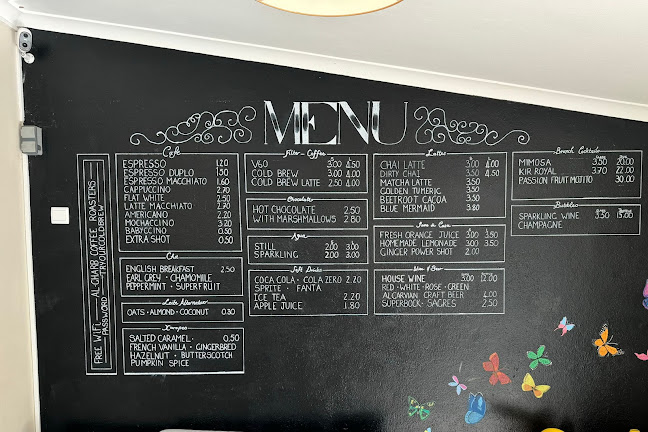 MENU
FREE WIFI - AL-GHARB COFFEE ROASTERS
PASSWORD - TRYOURCOLDBREW
Café
ESPRESSO 1.20
ESPRESSO DUPLO 1.50
ESPRESSO MACCHIATO 1.60
CAPPUCCINO 2.70
FLAT WHITE 2.50
LATTE MACCHIATO 2.70
AMERICANO 2.20
MOCHACCINO 3.20
BABYCCINO 0.50
EXTRA SHOT 0.50
Cha
ENGLISH BREAKFAST 2.50
EARL GREY · CHAMOMILE
PEPPERMINT · SUPERFRUIT
OATS · ALMOND · COCONUT 0.30
Xaropes
SALTED CARAMEL · 0.50
FRENCH VANILLA · GINGERBRED
HAZELNUT · BUTTERSCOTCH
PUMPKIN SPICE
Filter - Coffee
V60 3.00 4.50
COLD BREW 3.00 4.00
COLD BREW LATTE 2.50 4.00
Chocolate
HOT CHOCOLATE 2.50
WITH MARSHMALLOWS 2.80
Agua
STILL 2.00 3.00
SPARKLING 2.00 3.00
Soft Drinks
COCA COLA · COLA ZERO 2.20
SPRITE · FANTA
ICE TEA 2.20
APPLE JUICE 1.80
Lattes
CHAI LATTE 3.00 4.00
DIRTY CHAI 3.50 4.50
MATCHA LATTE 3.50
GOLDEN TUMERIC 3.50
BEETROOT CACOA 3.50
BLUE MERMAID 3.80
FRESH ORANGE JUICE 3.00 3.50
HOMEMADE LEMONADE 3.00 3.50
GINGER POWER SHOT 2.00
Wine & Beer
HOUSE WINE 3.00 12.00
RED · WHITE · ROSE · GREEN
ALGARVIAN CRAFT BEER 4.00
SUPERBOCK · SAGRES 2.50
Brunch Cocktails
MIMOSA 3.50 20.00
KIR ROYAL 3.70 22.00
PASSION FRUIT MOJITO 30.00
Bubbles
SPARKLING WINE 3.30 15.00
CHAMPAGNE